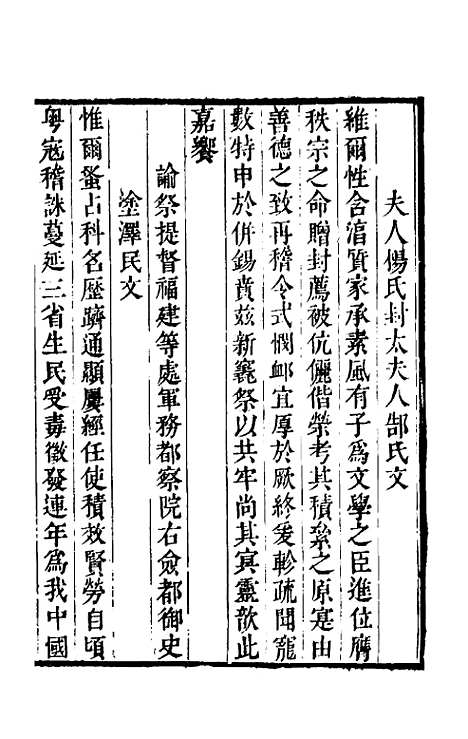 夫人傷氏封太夫人郜氏文
維爾性含湻質家承素風有子爲文學之臣進位膺
秩宗之命贈封薦被伉儷偕榮考其積絫之原寔由
善德之致再稽令式憫卹宜厚於厥終爰軫疏聞寵
數特申於併錫賁茲新竁祭以共牢尚其冥靈歆此
嘉饗
諭祭提督福建等處軍務都察院右僉都御史
塗澤民文
惟爾蚤占科名歷躋通顯屢經任使積效賢勞自頃
粤寇稽誅蔓延三省生民受毒徵發連年爲我中國